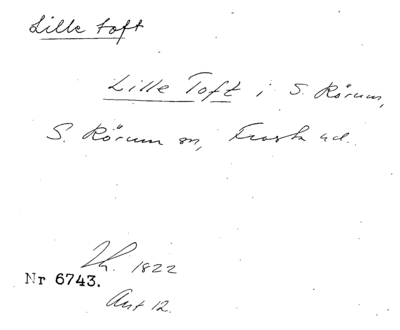 Lille toft
Lille Toft i S. Rörum,
S. Rörum sn, Frosta hd.
Lh. 1822
Nr 6743.
Ant 12.